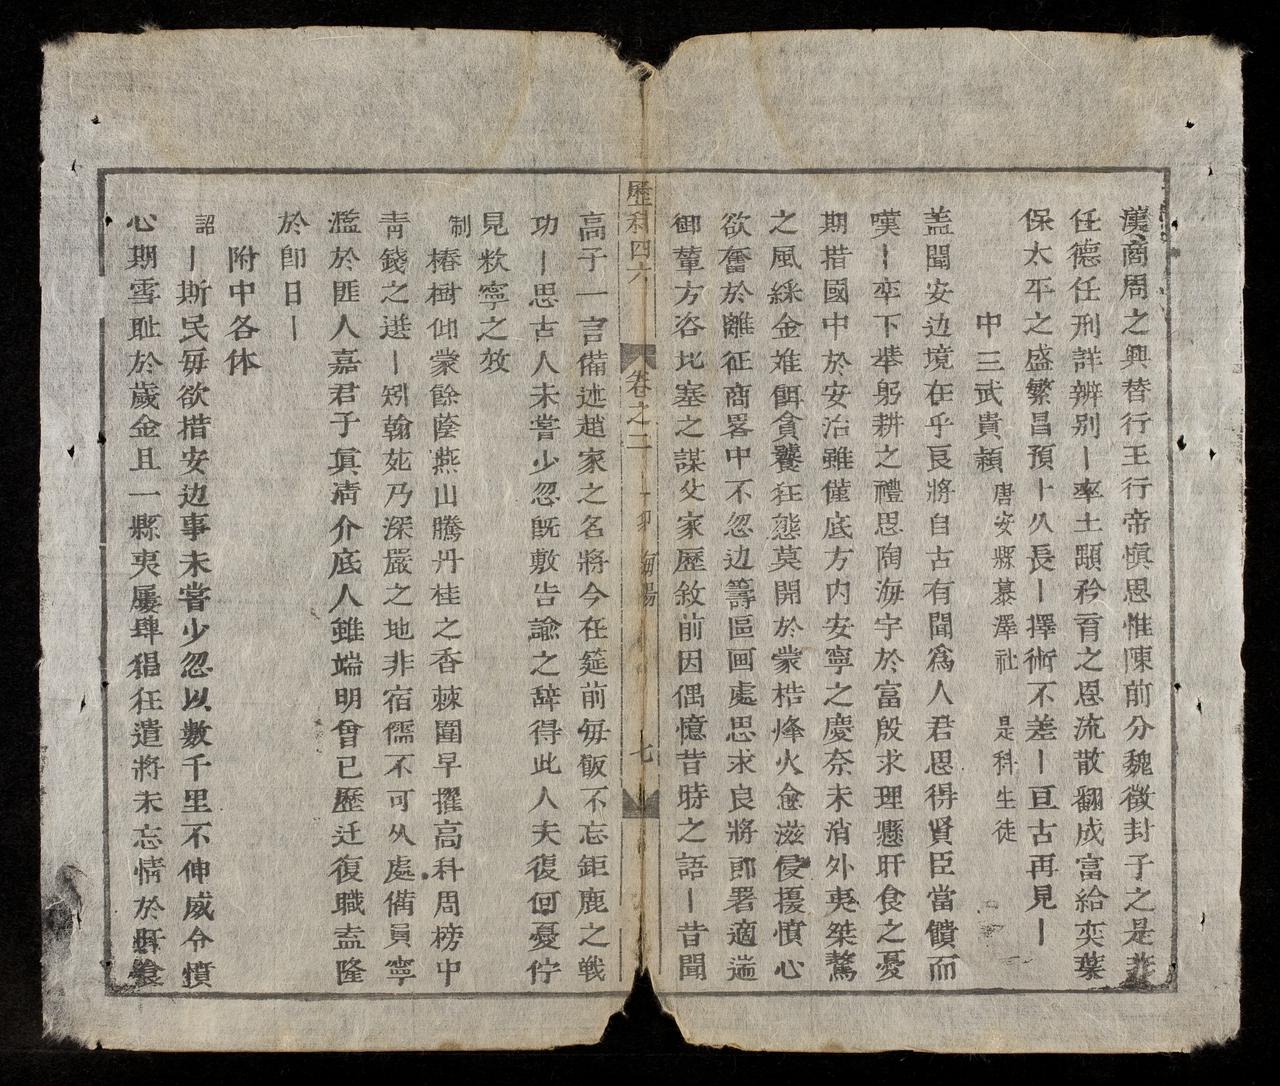 漢商周之興替行王行帝慎思惟陳前分魏徵封子之是
任德任刑詳辨别〡率土顕矜育之恩流散翻成富給奕葉
保太平之盛繁昌預卜久長〡擇術不差〡亘古再見〡
中三武貴穎 唐安縣慕澤社 是科生徒
盖聞安边境在乎良將自古有聞爲人君思得賢臣當饋而
嘆〡卒下㧞躬耕之禮思陶海宇於富殷求理懸旰食之憂
期措國中於安治雖僅底方内安寧之慶奈未消外夷桀驁
之風綵金雖餌貪饕狂態莫開於蒙梏烽火愈滋侵擾憤心
欲奮於離征商畧中不忽边籌區画處思求良將郎署適遄
御輦方咨比塞之謀父家歷敘前因偶憶昔時之語〡昔聞
歷科四六 卷之二 海陽 七
高子一言備述趙家之名將今在筵前每飯不忘鉅鹿之戦
功〡思古人未嘗少忽既敷告諭之辞得此人夫復何憂佇
見敉寧之效
制 椿樹仰蒙餘蔭燕山騰丹桂之香棘圍早擢高科周榜中
靑錢之選〡矧翰苑乃深嚴之地非宿儒不可从處僃員寧
濫於匪人嘉君子眞清介底人雖端明曾已歷迁復職盍隆
於卽日〡
附中各体
詔 〡斯民毎欲措安边事未嘗少忽以數千里不伸威令憤
心期雪耻於歲金且一縣夷屢肆猖狂遣將未忘情於旰飡